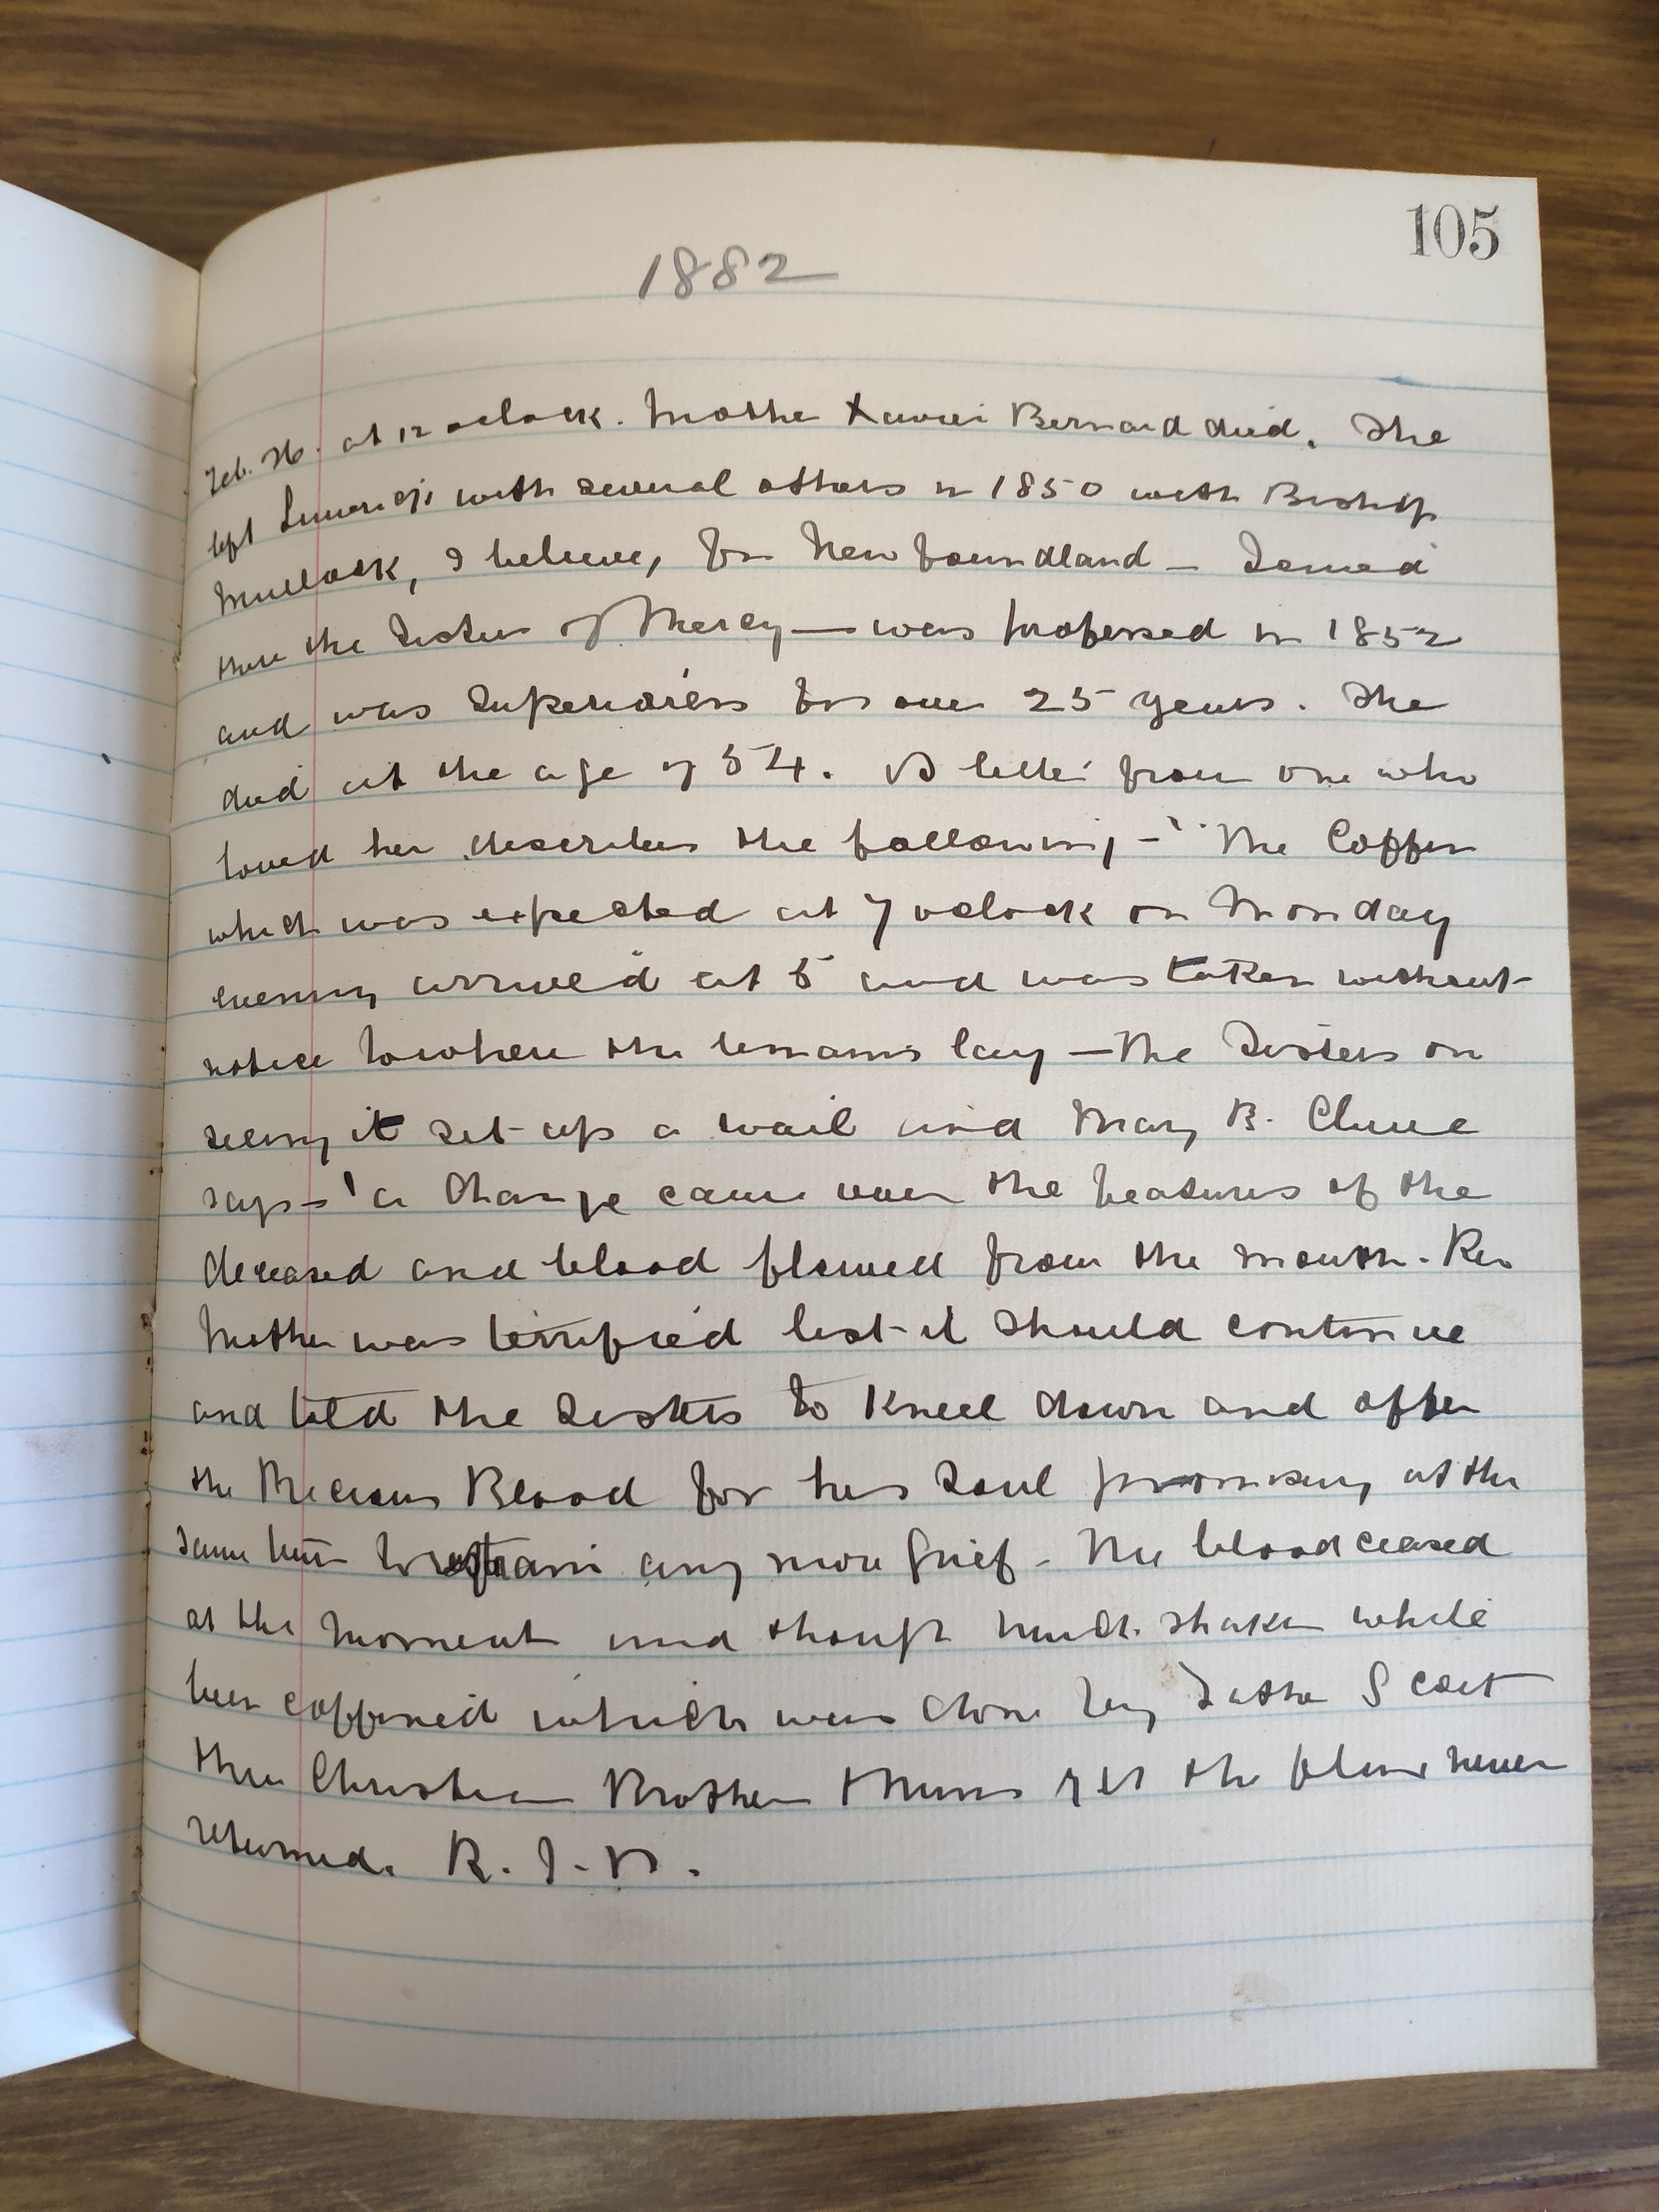 105
1882
Feb. 26. at 12 oclock. Mother Xavier Bernard died. She
left Limerick with several others in 1850 with Bishop
Mullock, I believe, for Newfoundland — Joined
there the Sisters of Mercy — was professed in 1852
and was Superioress for over 25 years. She
died at the age of 54. A letter from one who
loved her describes the following - "The Coffin
which was expected at 7 oclock on Monday
evening arrived at 5 and was taken without
notice to where the remains lay — The Sisters on
seeing it set up a wail and Mary B. Clune
says - 'a change came over the features of the
deceased and blood flowed from the mouth. Rev
Mother was terrified lest it should continue
and told the Sisters to kneel down and offer
the Precious Blood for her Soul promising at the
same time to restrain any more grief - The blood ceased
at the moment and though much shaken while
being coffined which was done by Father Scott
three Christian Brothers & Nuns yet the flow never
returned. R.I.P.